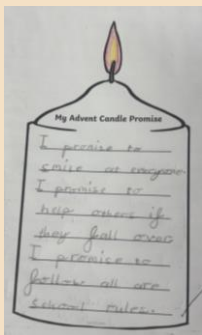 My Advent Candle Promise
I promise to
smile at everyone
I promise to
help others if
they fall over
I promice to
follow all are
school rules.